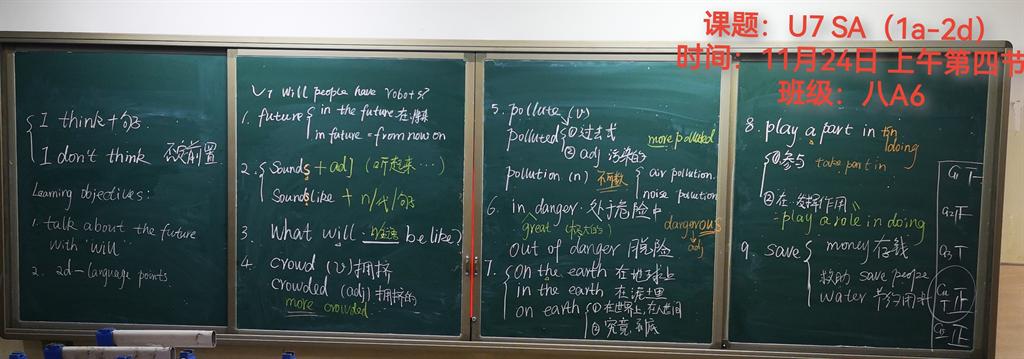 课题：U7 SA（1a-2d）
时间：11月24日 上午第四节
班级：八A6
I think + 句子
I don't think 否定前置
Learning objectives:
1. talk about the future
with "will"
2. 2d-language points.
U7 Will people have robots?
1. future
in the future 在将来
in future = from now on
2. Sounds + adj (听起来…)
Sounds like + n/代/句子
3. What will be like?
4. crowd (v) 拥挤
crowded (adj) 拥挤的
more crowded
5. pollute (v)
polluted ①过去式 more polluted
② adj 污染的
pollution (n) 不可数
air pollution
noise pollution
6. in danger 处于危险中
great dangerous
adj
out of danger 脱险
7. on the earth 在地球上
in the earth 在泥土里
on earth ①在世界上,在人世间
② 究竟,到底
8. play a part in
doing
①参与 take part in
②在…发挥作用
=play a role in doing
9. save money 存钱
救助 save people
water 节约用水
G1
G2 正
G3 T
G4 正
T
G5 正